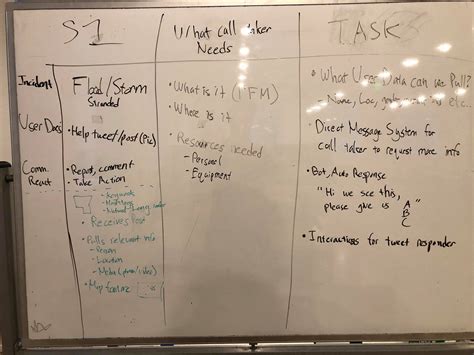 S1
Incident
Flood/Storm
Stranded
User Does
• Help tweet/post (Pic)
Comm.
Result
• Report, comment
• Take Action
- Keywords
- Hashtags
- Natural
• Receives Post
• Pulls relevant info
- Person
- Location
- Media (photo/video)
• Map
What Call Taker
Needs
• What is it (PFM)
• Where is it
• Resources needed
- Personal
- Equipment
TASK
• What User Data can we Pull?
- Name, Loc, etc..
• Direct Message System for
call taker to request more info
• Bot, Auto Response
"Hi we see this,
please give us A
B
C"
• Interactions for tweet responder